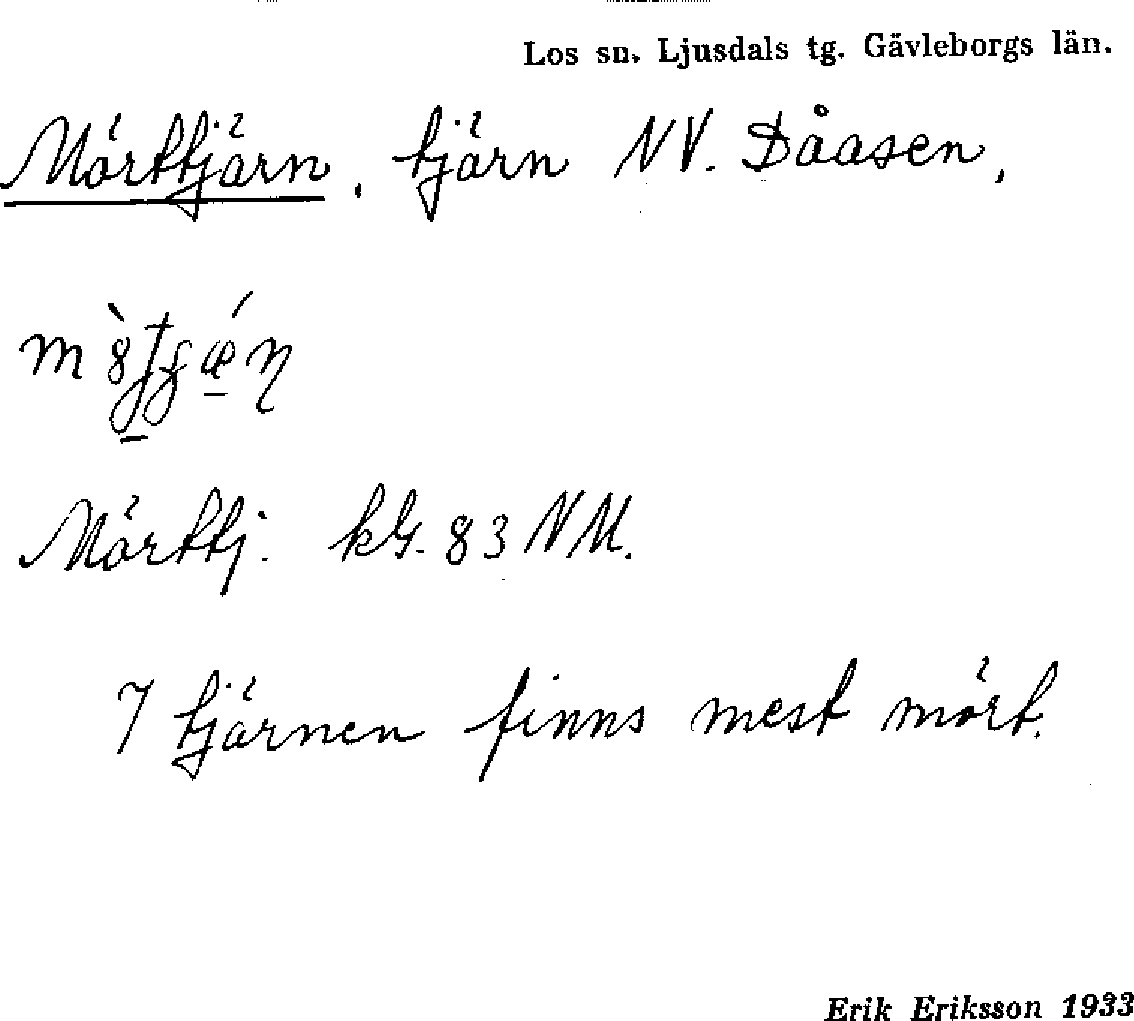 Los sn. Ljusdals tg. Gävleborgs län.
Mörttjärn, tjärn NV. Dåasen,
Mörttj. kbl. 83 NV.
I tjärnen finns mest mört.
Erik Eriksson 1933